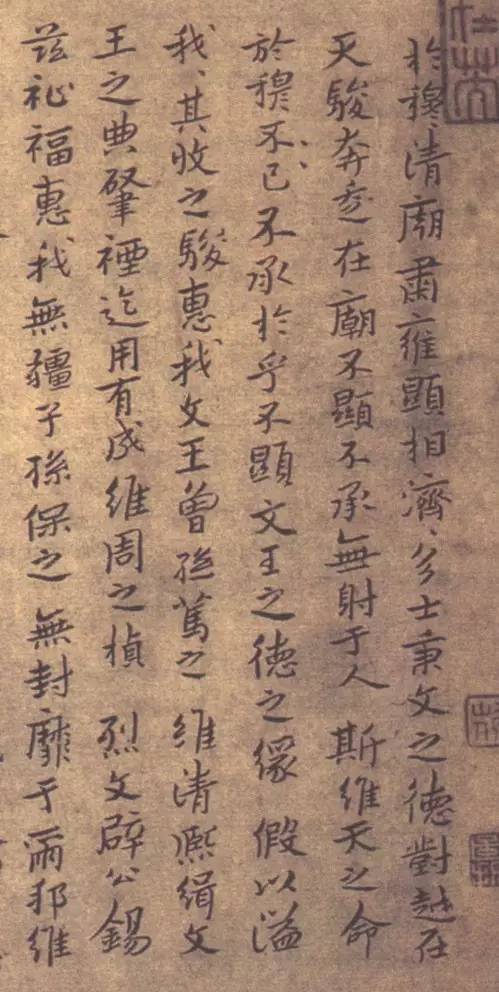 於穆〻清廟肅〻雍顯相濟〻多士秉文之德對越在
天駿奔走在廟不顯不承無射于人 斯維天之命
於穆不已不承於乎不顯文王之德之 假以溢
我〻其收之駿惠我文王曾孫篤之 維清熙緝文
王之典肇禋迄用有成維周之楨 烈文辟公錫
茲祉福惠我無疆子孫保之 無封靡于爾邦維